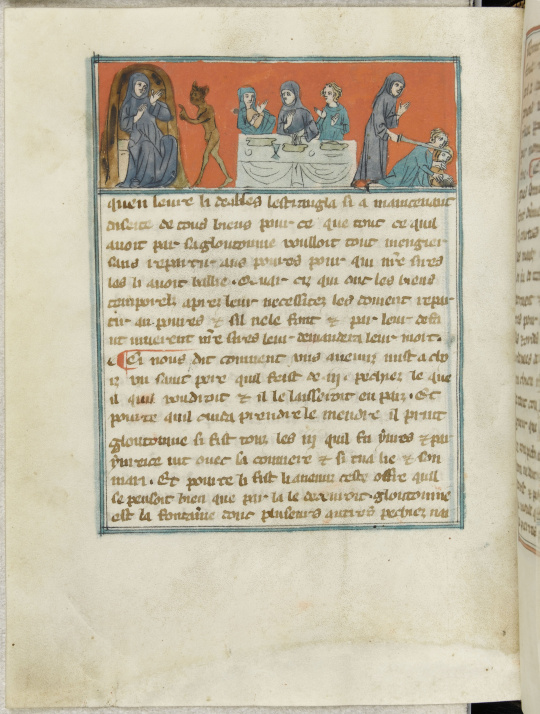 quen leure li deables lestrangla si a maintenant
diseite de tous biens pour ce que tout ce quil
auoit par sa gloutonnie vouloit tout mengier
sans repartir aus poures pour qui nr̄e sires
les li auoit baillie . Et uar cil qui ont les biens
temporels apres leur necessitez les doiuent repar
tir au poures ⁊ sil ne le font ⁊ par leur defau
ut muerent nr̄e sires leur demandera leur mort .
Ci nous dit comment vns anemis mist a choi
iz vn saint pere quil feist de .iij. pechiez le que
il qui voudroit ⁊ il le lairoit en paiz . Et
pource quil cuida prendre le mendre il prinst
gloutonnie si fist touz les iij quil fu yures ⁊ par
yurece iut ouec sa conmere ⁊ si tua lie ⁊ son
mari . Et pource li fist li anemis ceste offre quil
se pensoit bien que par la le deceuroit . gloutonnie
est la fontainne dont pluseurs autres pechiez nai